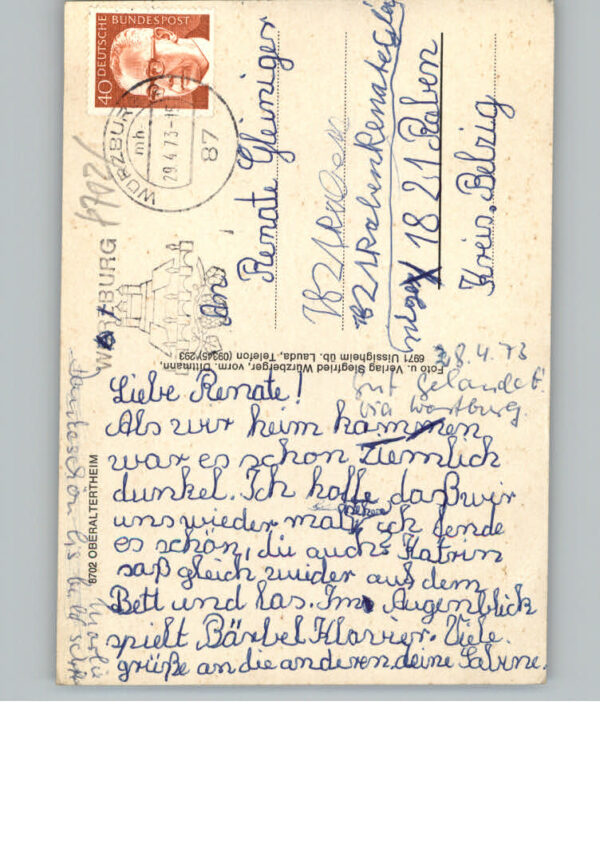 40 DEUTSCHE BUNDESPOST
WÜRZBURG
mh
29.4.73-15
87
8702
WÜRZBURG
An
Renate Gleiniger
1821Raben
1821RabenRenateGlei
niger 1821 Raben
Kreis. Belzig
Foto u. Verlag Siegfried Würzberger, vorm. Dittmann,
6971 Uissigheim üb. Lauda, Telefon (09345)/293
8702 OBERALTERTHEIM
28.4.73
Gut Gelandet!
via Wartburg.
Liebe Renate!
Als wir heim kammen
war es schon ziemlich
dunkel. Ich hoffe daßwir
uns wieder mal sehen ich fende
es schön, du auch? Katrin
saß gleich wieder auf dem
Bett und las. Im Augenblick
spielt Bärbel Klavier. Viele
grüße an die anderen deine Sabine.